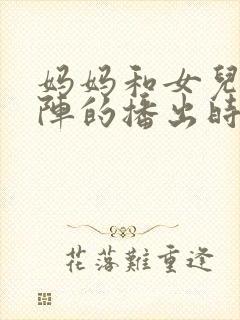 妈妈和女兒
陣的播出時
花落難重逢